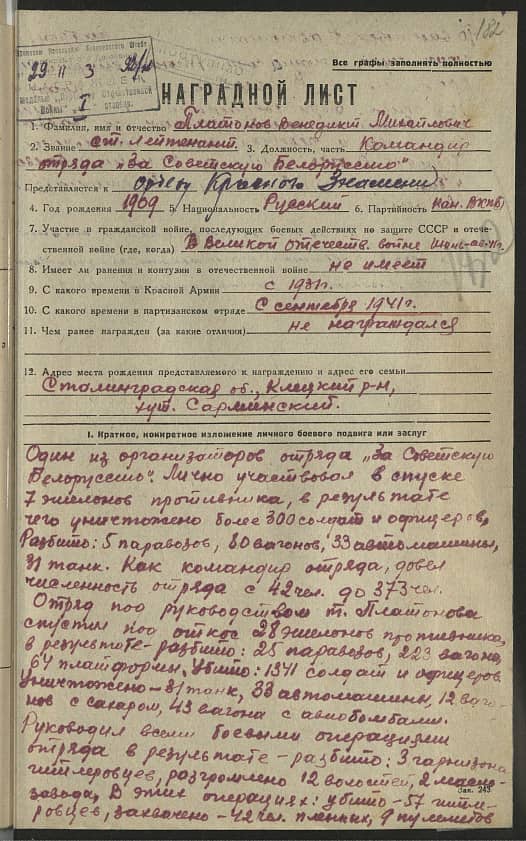 182
29 II 3
I
Все графы заполнять полностью
НАГРАДНОЙ ЛИСТ
1. Фамилия, имя и отчество Платонов Венедикт Михайлович
2. Звание ст. Лейтенант 3. Должность, часть Командир
отряда "За Советскую Белоруссию"
Представляется к ордену Красного Знамени
4. Год рождения 1909 5. Национальность Русский 6. Партийность кан. ВКП(б)
7. Участие в гражданской войне, последующих боевых действиях по защите СССР и отече-
ственной войне (где, когда) В Великой отечеств. войне
8. Имеет ли ранения и контузии в отечественной войне не имеет
9. С какого времени в Красной Армии с 1931г.
10. С какого времени в партизанском отряде С сентября 1941г.
11. Чем ранее награжден (за какие отличия) не награждался
12. Адрес места рождения представляемого к награждению и адрес его семьи
Сталинградская об., Клецкий р-н,
хут.
I. Краткое, конкретное изложение личного боевого подвига или заслуг
Один из организаторов отряда "За Советскую
Белоруссию". Лично участвовал в спуске
7 эшелонов противника, в результате
чего уничтожено более 300 солдат и офицеров,
Разбито: 5 паравозов, 80 вагонов, 33 автомашины,
31 танк. Как командир отряда, довел
численность отряда с 42 чел. до 373 чел.
Отряд под руководством т. Платонова
спустил под откос 28 эшелонов противника,
в результате - разбито: 25 паравозов, 223 вагона,
64 платформы. Убито: 1341 солдат и офицеров
Уничтожено - 31 танк, 33 автомашины, 12 ваго-
нов с сахаром, 43 вагона с авиобомбами.
Руководил всеми боевыми операциями
отряда в результате - разбито: 3 гарнизона
гитлеровцев, разгромлено 12 волостей, 2 масло-
завода, В этих операциях: убито - 57 гитле-
ровцев, захвачено - 42 чел. пленных, 9 пулеметов
Зак. 243